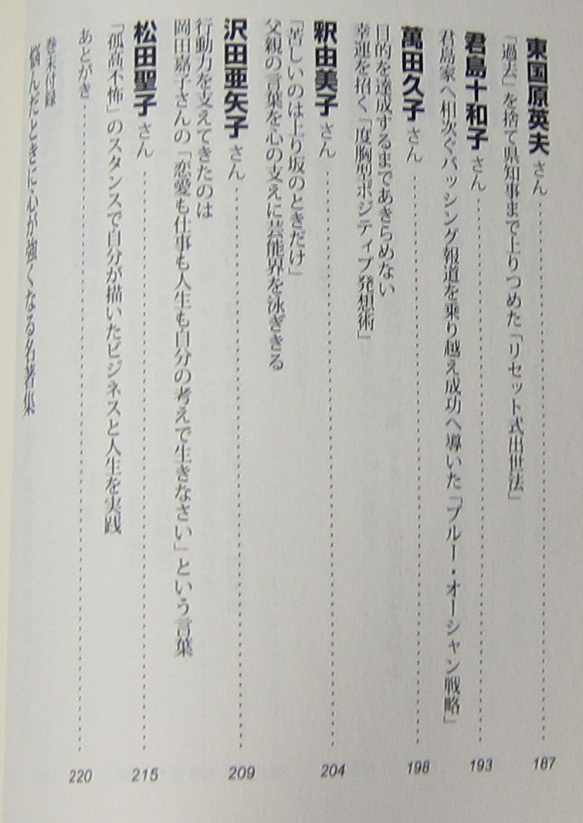 東国原英夫さん……187
「過去」を捨て県知事まで上りつめた「リセット式出世法」
君島十和子さん……193
君島家へ相次ぐバッシング報道を乗り越え成功へ導いた「ブルー・オーシャン戦略」
萬田久子さん……198
目的を達成するまであきらめない
幸運を招く「度胸型ポジティブ発想術」
釈由美子さん……204
「苦しいのは上り坂のときだけ」
父親の言葉を心の支えに芸能界を泳ぎきる
沢田亜矢子さん……209
行動力を支えてきたのは
岡田嘉子さんの「恋愛も仕事も人生も自分の考えで生きなさい」という言葉
松田聖子さん……215
「孤高不怖」のスタンスで自分が描いたビジネスと人生を実践
あとがき……220
巻末付録
悩んだときに心が強くなる名著集